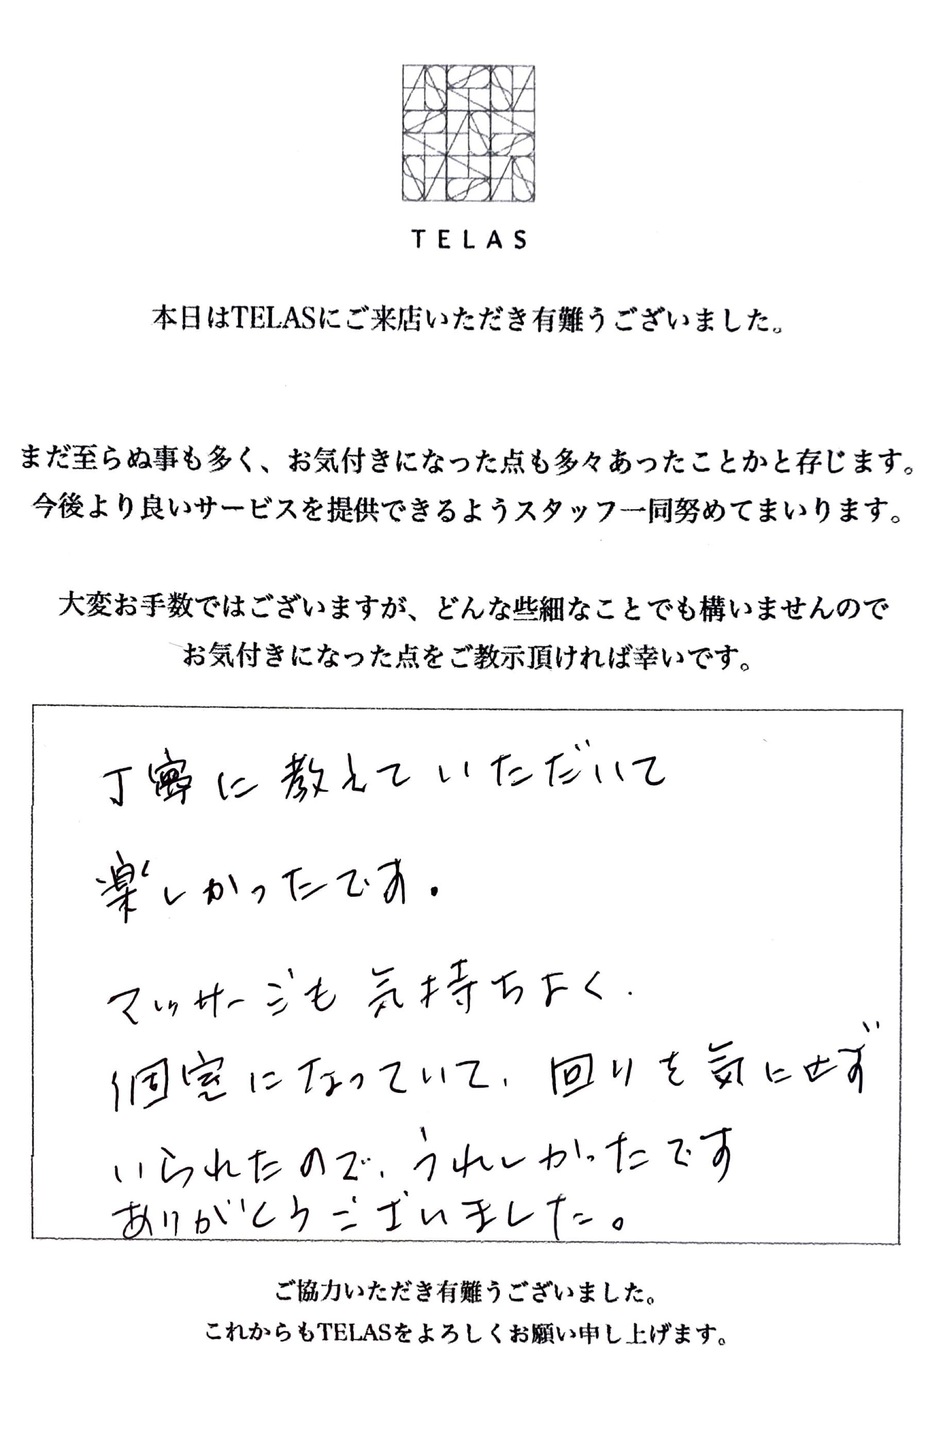 TELAS
本日はTELASにご来店いただき有難うございました。
まだ至らぬ事も多く、お気付きになった点も多々あったことかと存じます。
今後より良いサービスを提供できるようスタッフ一同努めてまいります。
大変お手数ではございますが、どんな些細なことでも構いませんので
お気付きになった点をご教示頂ければ幸いです。
丁寧に教えていただいて
楽しかったです.
マッサージも気持ちよく.
個室になっていて、回りを気にせず
いられたので、うれしかったです
ありがとうございました。
ご協力いただき有難うございました。
これからもTELASをよろしくお願い申し上げます。